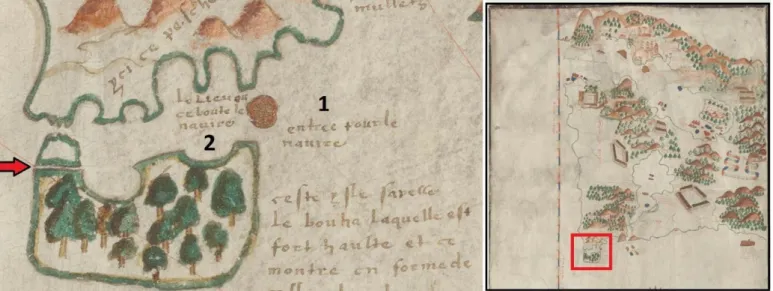 mullets
yci ce pesche
Le Lieu ou
ce boute le
navire
1
entree pour le
navire
2
ceste ysle sarelle
Le bouha Laquelle est
fort haulte et ce
montre en forme de